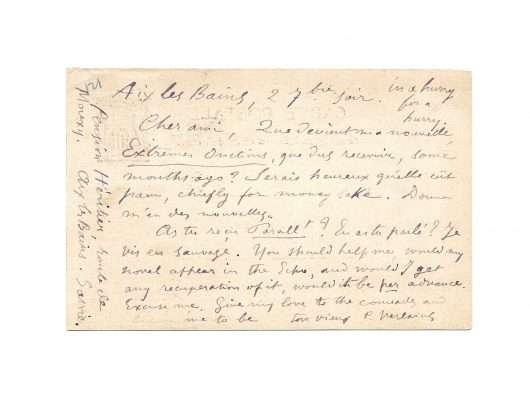 Aix les Bains, 2 7bre soir.
in a hurry
for a
hurry.
Cher ami, Que devient ma nouvelle,
Extrêmes Onctions, que dus recevoir, some
mouths ago? Serais heureux qu'elle eût
paru, chiefly for money sake. Donne
m'en des nouvelles.
As tu reçu Parallt? En as tu parlé? Je
vis en sauvage. You should help me, would my
novel appear in the Echo, and would I get
any recuperation of it, would it be per advance.
Excuse me. Give my love to the comrades and
me to be ton vieux P. Verlaine
Pension Héritier, route de
Mouxy. Aix les Bains. Savoie.